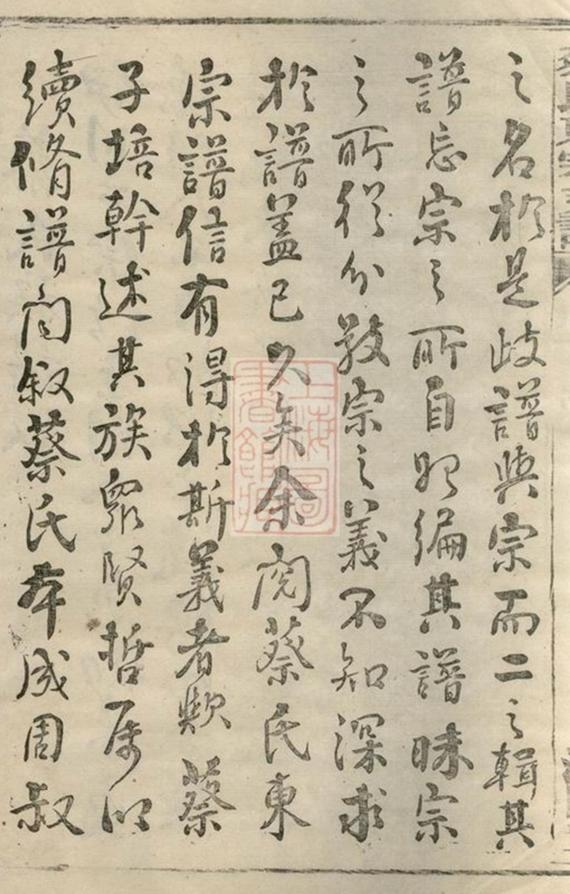 之名於是歧譜與宗而二之輯其
譜忘宗之所自始編其譜昧宗
之所從分敬宗之義不知深求
於譜蓋已久矣余閱蔡氏東
宗譜信有得於斯義者歟蔡
子培幹述其族眾賢哲屬以
續脩譜問叙蔡氏本成周叔
上海圖書館藏